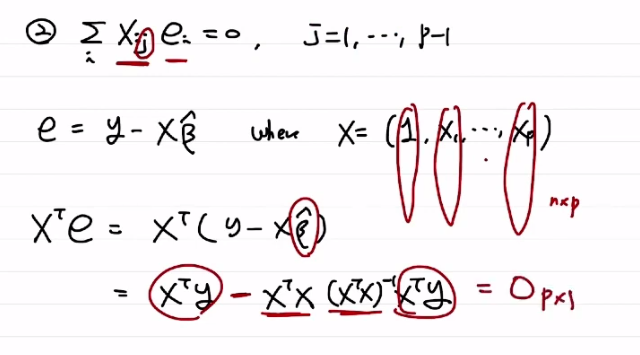 ② Σᵢ Xᵢⱼ eᵢ = 0 , J=1, ⋯, p-1
e = y - Xβ̂ where X = (1, X₁, ⋯, Xp)
n×p
Xᵀe = Xᵀ( y - Xβ̂ )
= Xᵀy - XᵀX (XᵀX)⁻¹ Xᵀy = 0 p×1